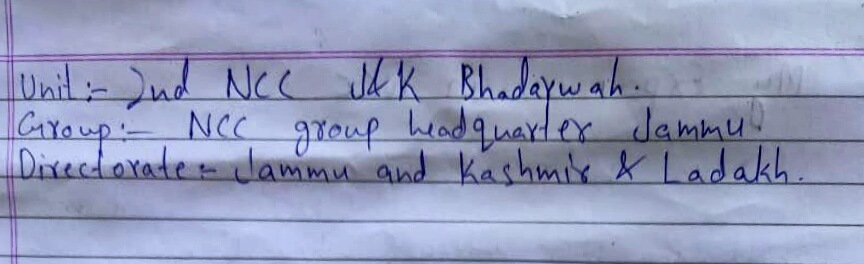 Unit:- 2nd NCC J&K Bhadarwah.
Group:- NCC group headquarter Jammu
Directorate- Jammu and Kashmir & Ladakh.